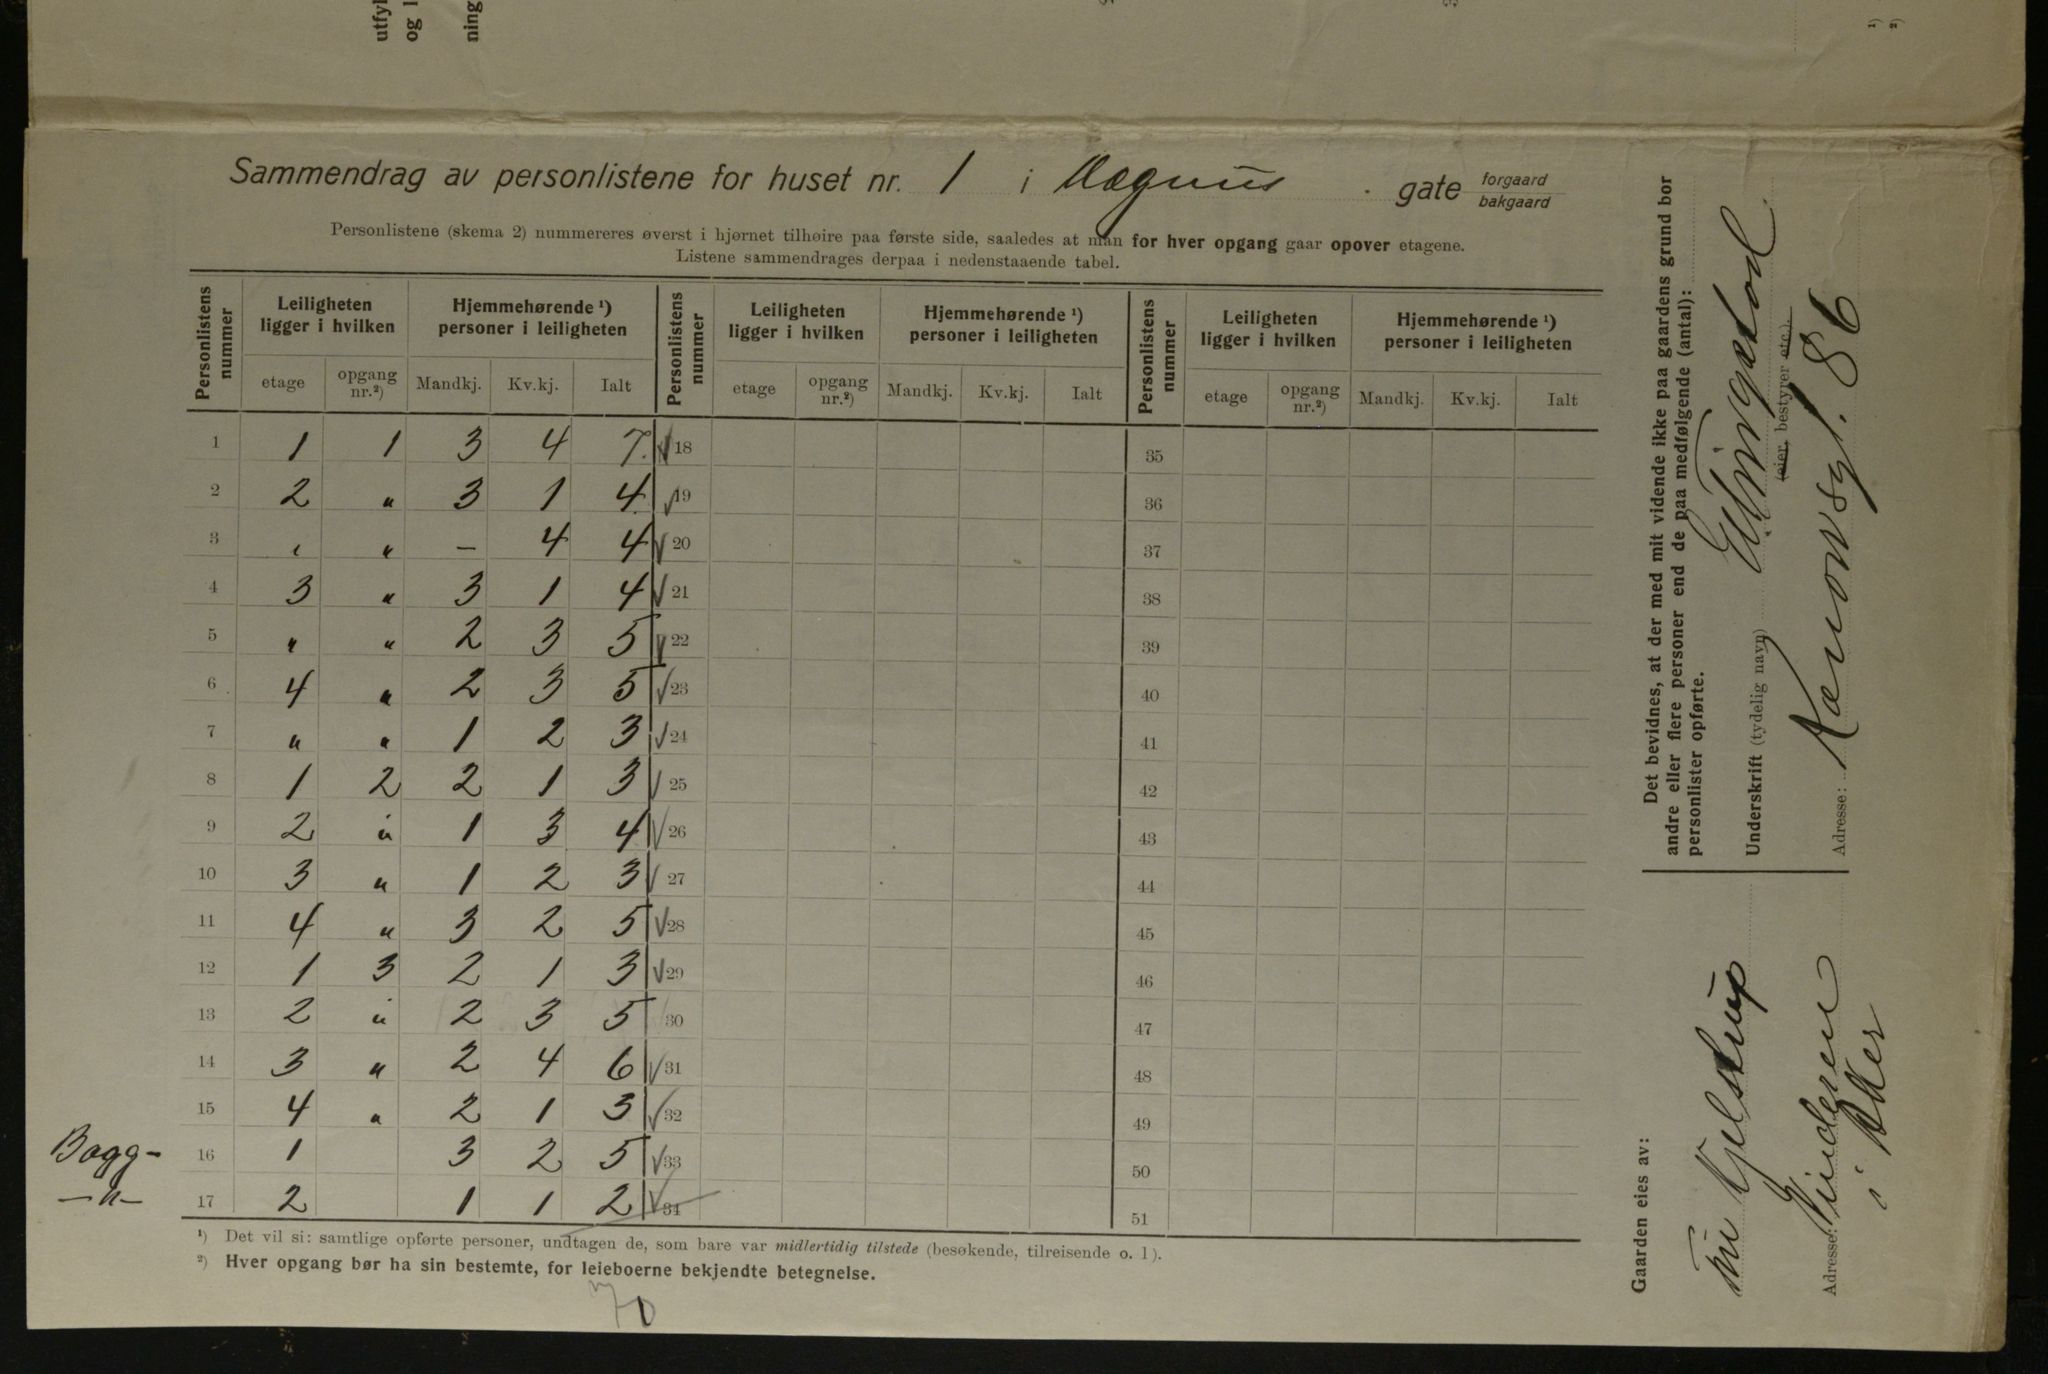 utfyl
og l
ning
¹)
²)
Sammendrag av personlistene for huset nr. 1 i Magnus gate forgaard bakgaard
Personlistene (skema 2) nummereres øverst i hjørnet tilhøire paa første side, saaledes at man for hver opgang gaar opover etagene.
Listene sammendrages derpaa i nedenstaaende tabel.
Personlistens nummer | Leiligheten ligger i hvilken | Hjemmehørende ¹) personer i leiligheten | Personlistens nummer | Leiligheten ligger i hvilken | Hjemmehørende ¹) personer i leiligheten | Personlistens nummer | Leiligheten ligger i hvilken | Hjemmehørende ¹) personer i leiligheten
etage | opgang nr.²) | Mandkj. | Kv.kj. | Ialt | etage | opgang nr.²) | Mandkj. | Kv.kj. | Ialt | etage | opgang nr.²) | Mandkj. | Kv.kj. | Ialt
1 1 1 3 4 7. √ 18 35
2 2 " 3 1 4 √ 19 36
3 " " – 4 4 √ 20 37
4 3 " 3 1 4 √ 21 38
5 " " 2 3 5 √ 22 39
6 4 " 2 3 5 √ 23 40
7 " " 1 2 3 √ 24 41
8 1 2 2 1 3 √ 25 42
9 2 " 1 3 4 √ 26 43
10 3 " 1 2 3 √ 27 44
11 4 " 3 2 5 √ 28 45
12 1 3 2 1 3 √ 29 46
13 2 " 2 3 5 30 47
14 3 " 2 4 6 √ 31 48
15 4 " 2 1 3 √ 32 49
Bagg- 16 1 3 2 5 √ 33 50
–"– 17 2 1 1 2 √ 34 51
¹) Det vil si: samtlige opførte personer, undtagen de, som bare var midlertidig tilstede (besøkende, tilreisende o. l).
²) Hver opgang bør ha sin bestemte, for leieboerne bekjendte betegnelse.
Det bevidnes, at der med mit vidende ikke paa gaardens grund bor
andre eller flere personer end de paa medfølgende (antal):
personlister opførte.
Underskrift (tydelig navn)
(eier, bestyrer etc.).
Adresse: 86
Gaarden eies av:
Kjelstrup
Adresse: Vinderen
i Aker